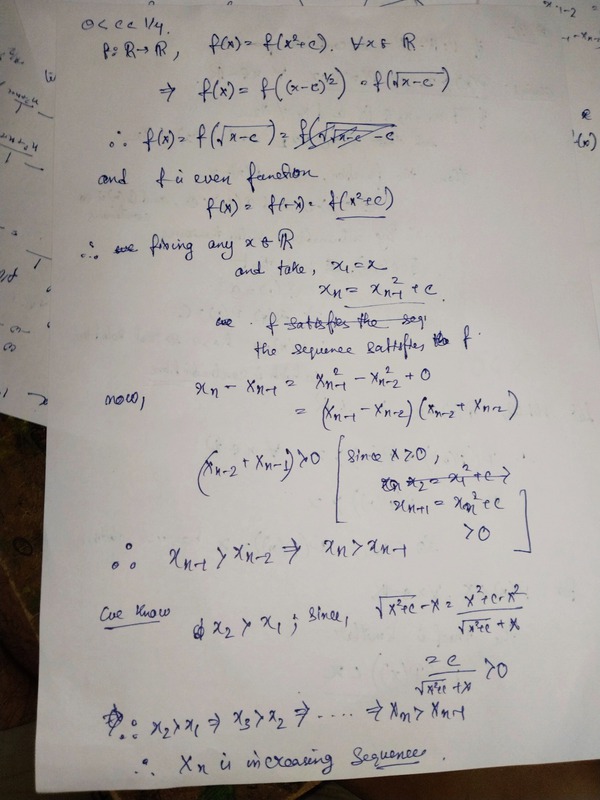 0 < c < 1/4.
f: R → R, f(x) = f(x²+c). ∀ x ∈ R
⇒ f(x) = f((x-c)^{1/2}) = f(√(x-c))
∴ f(x) = f(√(x-c)) =
and f is even function
f(x) = f(-x) = f(x²+c)
∴ fixing any x ∈ R
and take, x₁ = x
xₙ = xₙ₋₁² + c.
we f satisfies the seq
the sequence satisfies f.
now, xₙ - xₙ₋₁ = xₙ₋₁² - xₙ₋₂² + 0
= (xₙ₋₁ - xₙ₋₂)(xₙ₋₂ + xₙ₋₂)
(xₙ₋₂ + xₙ₋₁) > 0 [since x > 0,
x₂ = x₁² + c >
xₙ₊₁ = xₙ² + c
> 0 ]
∴ xₙ₋₁ > xₙ₋₂ ⇒ xₙ > xₙ₋₁
we know x₂ > x₁ ; since, √(x²+c) - x = (x²+c-x²)/(√(x²+c) + x)
= c/(√(x²+c) + x) > 0
∴ x₂ > x₁ ⇒ x₃ > x₂ ⇒ ..... ⇒ xₙ > xₙ₋₁
∴ xₙ is increasing sequence.